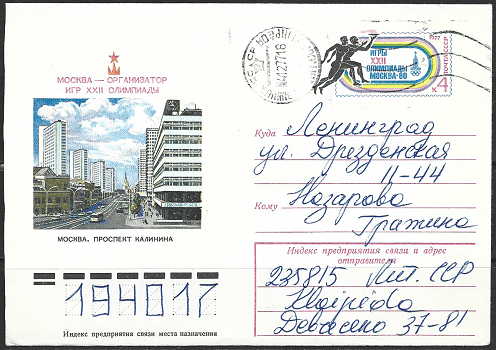 МОСКВА — ОРГАНИЗАТОР
ИГР XXII ОЛИМПИАДЫ
МОСКВА. ПРОСПЕКТ КАЛИНИНА
194017
Индекс предприятия связи места назначения
ИГРЫ
XXII
ОЛИМПИАДЫ
МОСКВА-80
1977
ПОЧТА СССР
4 К
Куда Ленинград
ул. Дрезденская
11-44
Кому Назарова
Гражина
Индекс предприятия связи и адрес
отправителя
235815 Лит. ССР
37-81